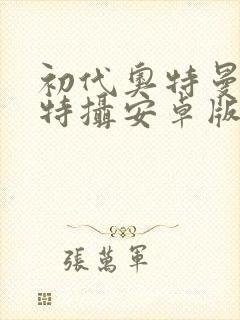 初代奥特曼
特攝安卓版
張萬軍